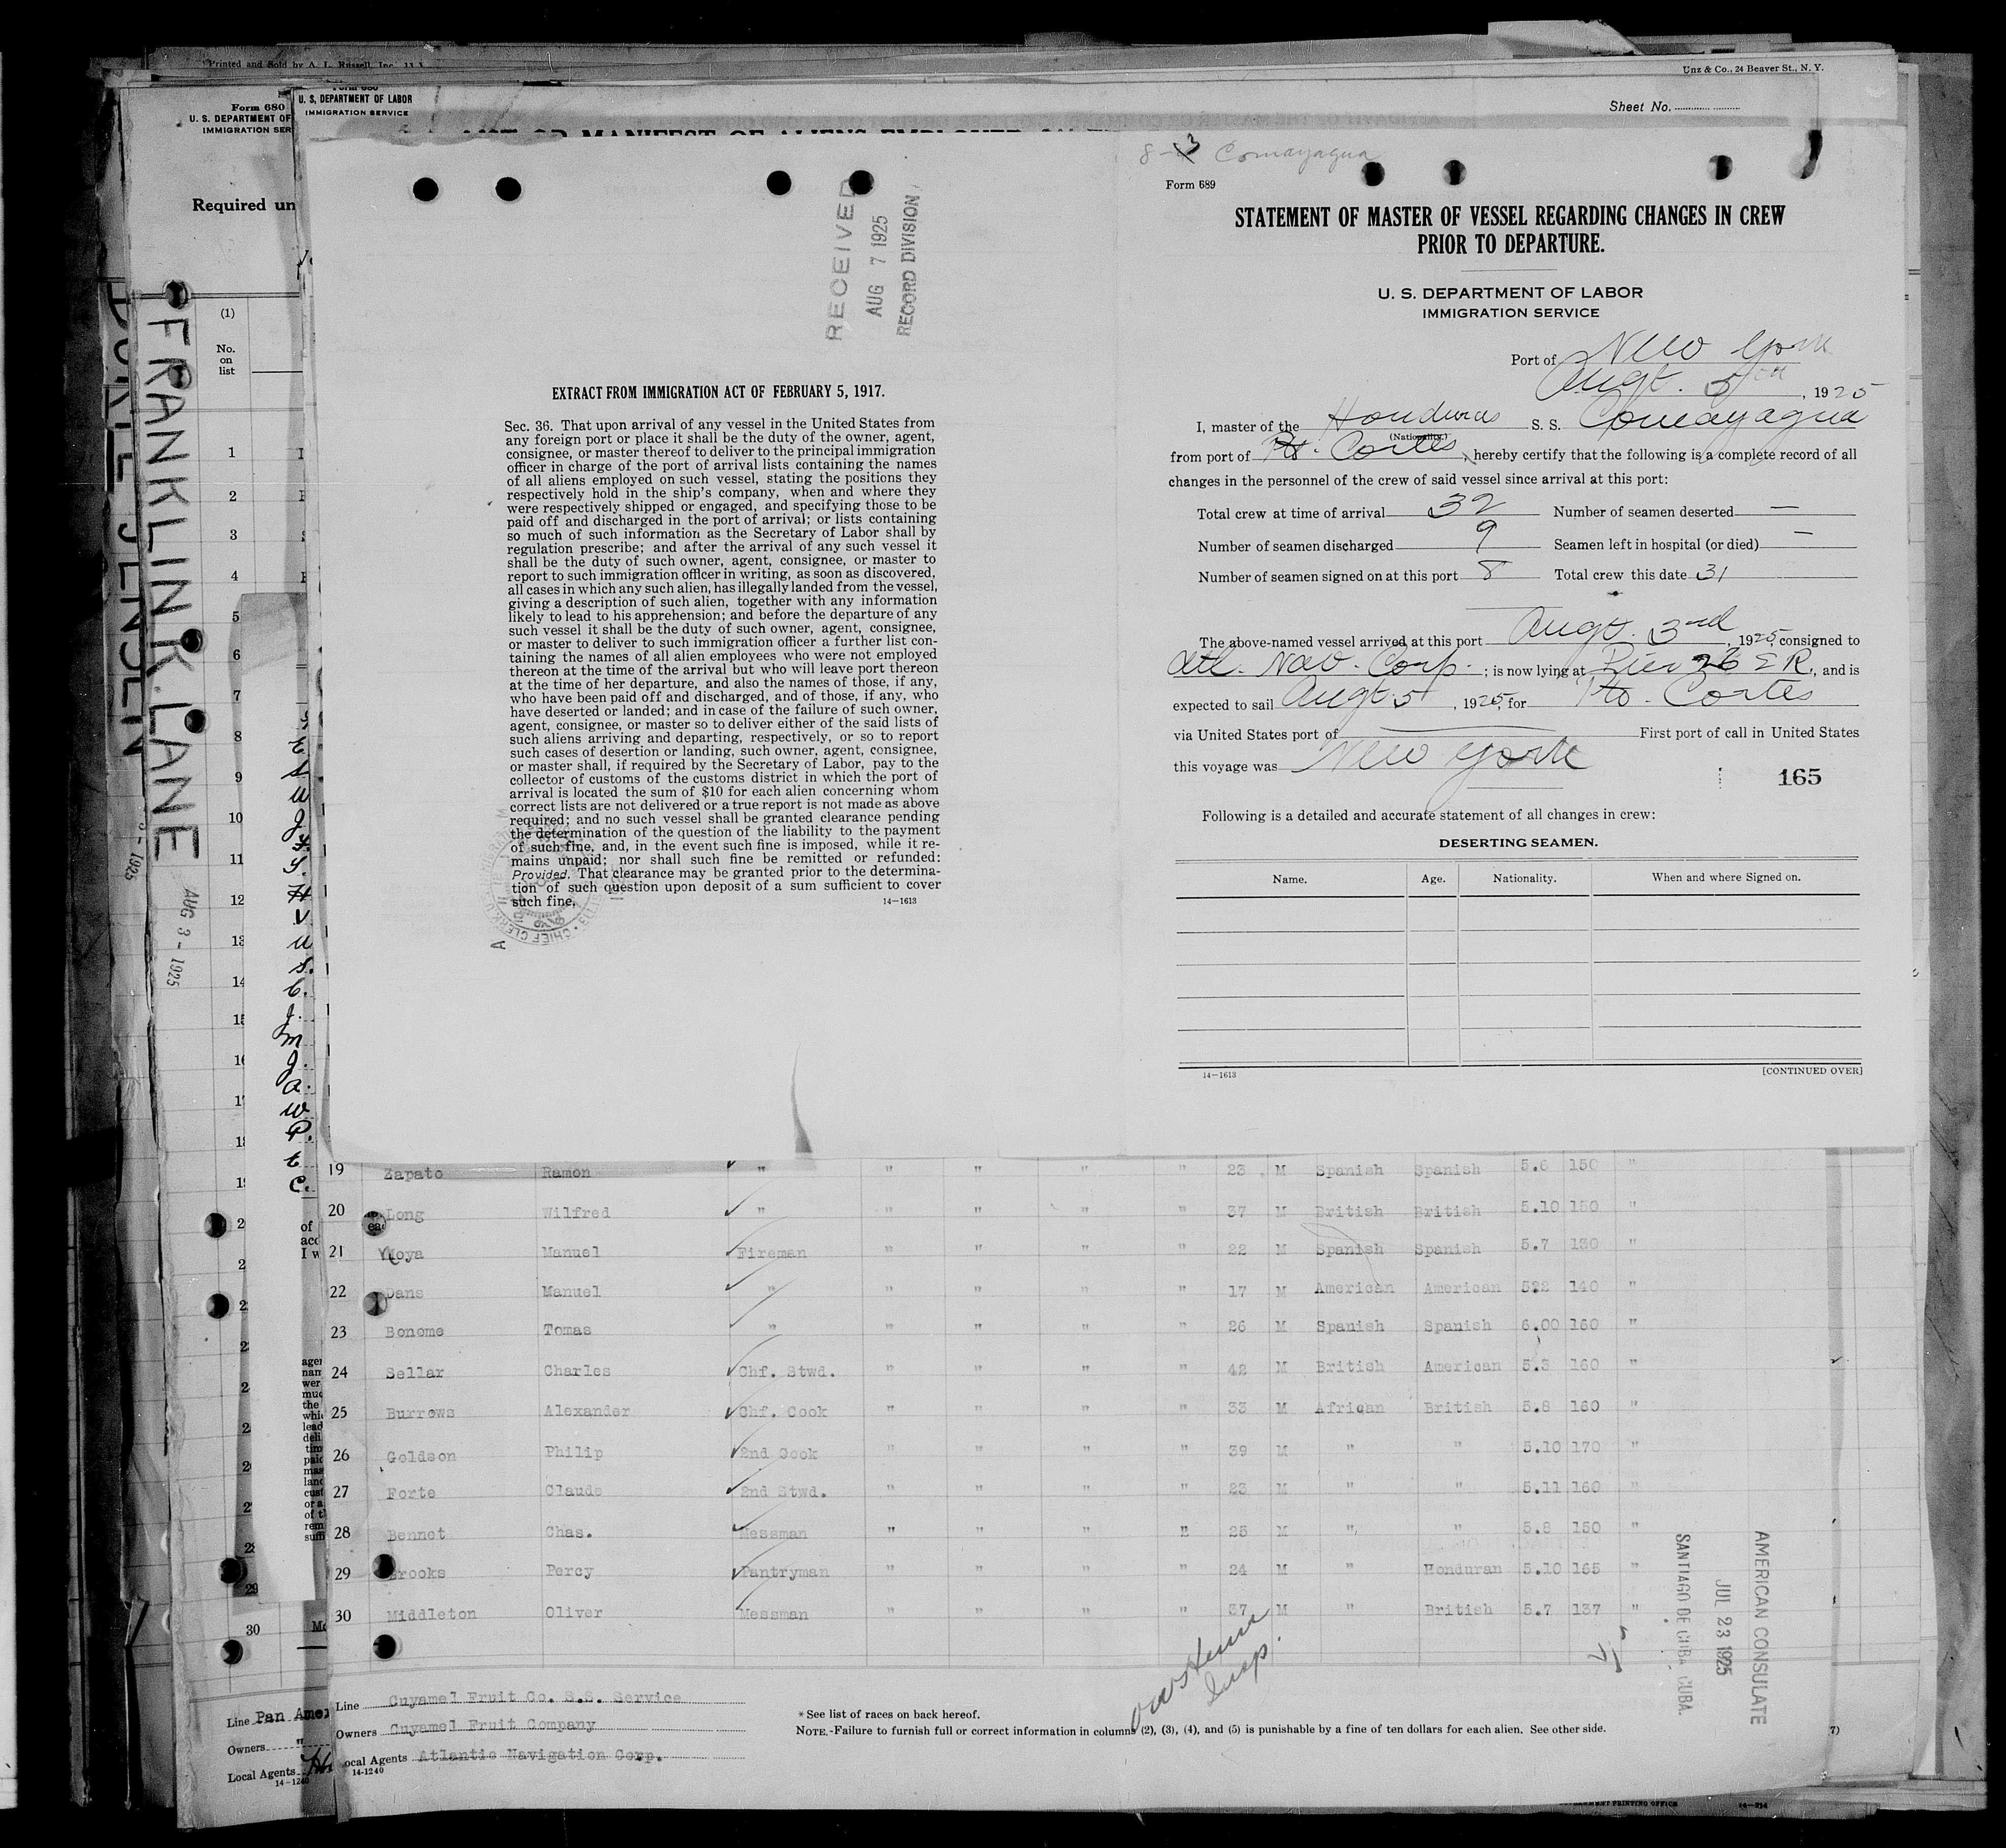 Printed and Sold by A. L. Russell, Inc.
Unz & Co., 24 Beaver St., N. Y.
Form 680
U. S. DEPARTMENT OF
IMMIGRATION SER
U. S. DEPARTMENT OF LABOR
IMMIGRATION SERVICE
Sheet No.
Required un
(1)
No.
on
list
FRANKLIN K. LANE
AUG 3 - 1925
RECEIVED
AUG 7 1925
RECORD DIVISION
EXTRACT FROM IMMIGRATION ACT OF FEBRUARY 5, 1917.
Sec. 36. That upon arrival of any vessel in the United States from
any foreign port or place it shall be the duty of the owner, agent,
consignee, or master thereof to deliver to the principal immigration
officer in charge of the port of arrival lists containing the names
of all aliens employed on such vessel, stating the positions they
respectively hold in the ship's company, when and where they
were respectively shipped or engaged, and specifying those to be
paid off and discharged in the port of arrival; or lists containing
so much of such information as the Secretary of Labor shall by
regulation prescribe; and after the arrival of any such vessel it
shall be the duty of such owner, agent, consignee, or master to
report to such immigration officer in writing, as soon as discovered,
all cases in which any such alien, has illegally landed from the vessel,
giving a description of such alien, together with any information
likely to lead to his apprehension; and before the departure of any
such vessel it shall be the duty of such owner, agent, consignee,
or master to deliver to such immigration officer a further list con-
taining the names of all alien employees who were not employed
thereon at the time of the arrival but who will leave port thereon
at the time of her departure, and also the names of those, if any,
who have been paid off and discharged, and of those, if any, who
have deserted or landed; and in case of the failure of such owner,
agent, consignee, or master so to deliver either of the said lists of
such aliens arriving and departing, respectively, or so to report
such cases of desertion or landing, such owner, agent, consignee,
or master shall, if required by the Secretary of Labor, pay to the
collector of customs of the customs district in which the port of
arrival is located the sum of $10 for each alien concerning whom
correct lists are not delivered or a true report is not made as above
required; and no such vessel shall be granted clearance pending
the determination of the question of the liability to the payment
of such fine, and, in the event such fine is imposed, while it re-
mains unpaid; nor shall such fine be remitted or refunded:
Provided. That clearance may be granted prior to the determina-
tion of such question upon deposit of a sum sufficient to cover
such fine.
14—1613
8-3 Comayagua
Form 689
STATEMENT OF MASTER OF VESSEL REGARDING CHANGES IN CREW
PRIOR TO DEPARTURE.
U. S. DEPARTMENT OF LABOR
IMMIGRATION SERVICE
Port of New York
Augt. 5th, 1925
I, master of the Honduras S. S. Comayagua
(Nationality.)
from port of Pto. Cortes, hereby certify that the following is a complete record of all
changes in the personnel of the crew of said vessel since arrival at this port:
Total crew at time of arrival 32 Number of seamen deserted —
Number of seamen discharged 9 Seamen left in hospital (or died) —
Number of seamen signed on at this port 8 Total crew this date 31
The above-named vessel arrived at this port Augt. 3rd, 1925, consigned to
Atl. Nav. Corp.; is now lying at Pier 26 E R, and is
expected to sail Augt 5, 1925, for Pto. Cortes
via United States port of — First port of call in United States
this voyage was New York
165
Following is a detailed and accurate statement of all changes in crew:
DESERTING SEAMEN.
Name. Age. Nationality. When and where Signed on.
14—1613 [CONTINUED OVER]
19 Zapato Ramon " " " " " 23 M Spanish Spanish 5.6 150 "
20 Long Wilfred " " " " " 37 M British British 5.10 150 "
21 Moya Manuel Fireman " " " " 22 M Spanish Spanish 5.7 130 "
22 Dans Manuel " " " " " 17 M American American 5.2 140 "
23 Bonome Tomas " " " " " 26 M Spanish Spanish 6.00 160 "
24 Sellar Charles Chf. Stwd. " " " " 42 M British American 5.3 160 "
25 Burrows Alexander Chf. Cook " " " " 33 M African British 5.8 160 "
26 Goldson Philip 2nd Cook " " " " 39 M " " 5.10 170 "
27 Forte Claude 2nd Stwd. " " " " 23 M " " 5.11 160 "
28 Bennet Chas. Messman " " " " 25 M " " 5.8 150 "
29 Brooks Percy Pantryman " " " " 24 M " Honduran 5.10 165 "
30 Middleton Oliver Messman " " " " 37 M " British 5.7 137 "
AMERICAN CONSULATE
JUL 23 1925
SANTIAGO DE CUBA, CUBA.
Insp.
Line Cuyamel Fruit Co. S.S. Service
Owners Cuyamel Fruit Company
Local Agents Atlantic Navigation Corp.
14-1240
* See list of races on back hereof.
NOTE.-Failure to furnish full or correct information in columns (2), (3), (4), and (5) is punishable by a fine of ten dollars for each alien. See other side.
Line Pan Amer
Owners "
Local Agents
14-1240